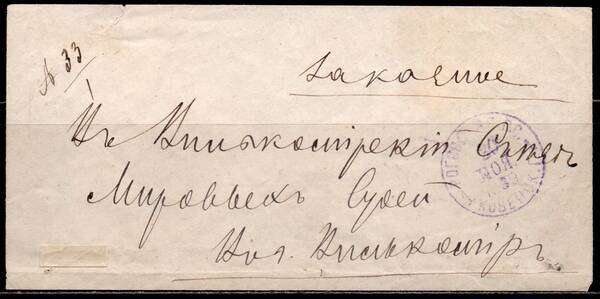 № 33
Заказное
Въ Вилькомирскій Съѣздъ
Мировыхъ Судей
Вилькомиръ
НОЯ
КОВЕНСК